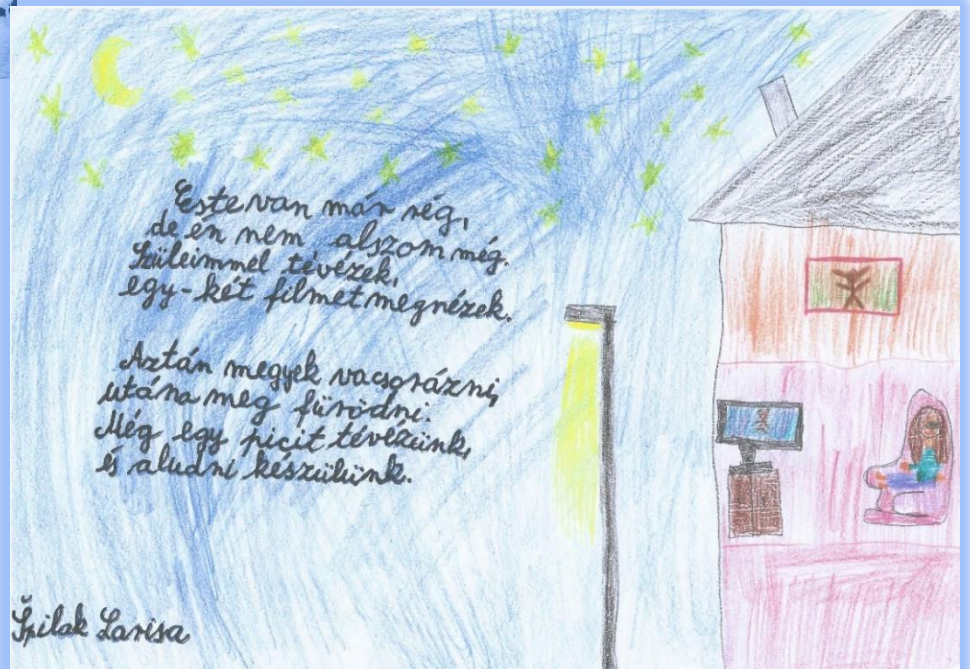 Este van már rég,
de én nem alszom még.
Szüleimmel tévézek,
egy-két filmet megnézek.
Aztán megyek vacsorázni,
utána meg fürödni.
Még egy picit tévézünk,
és aludni készülünk.
Špilak Larisa